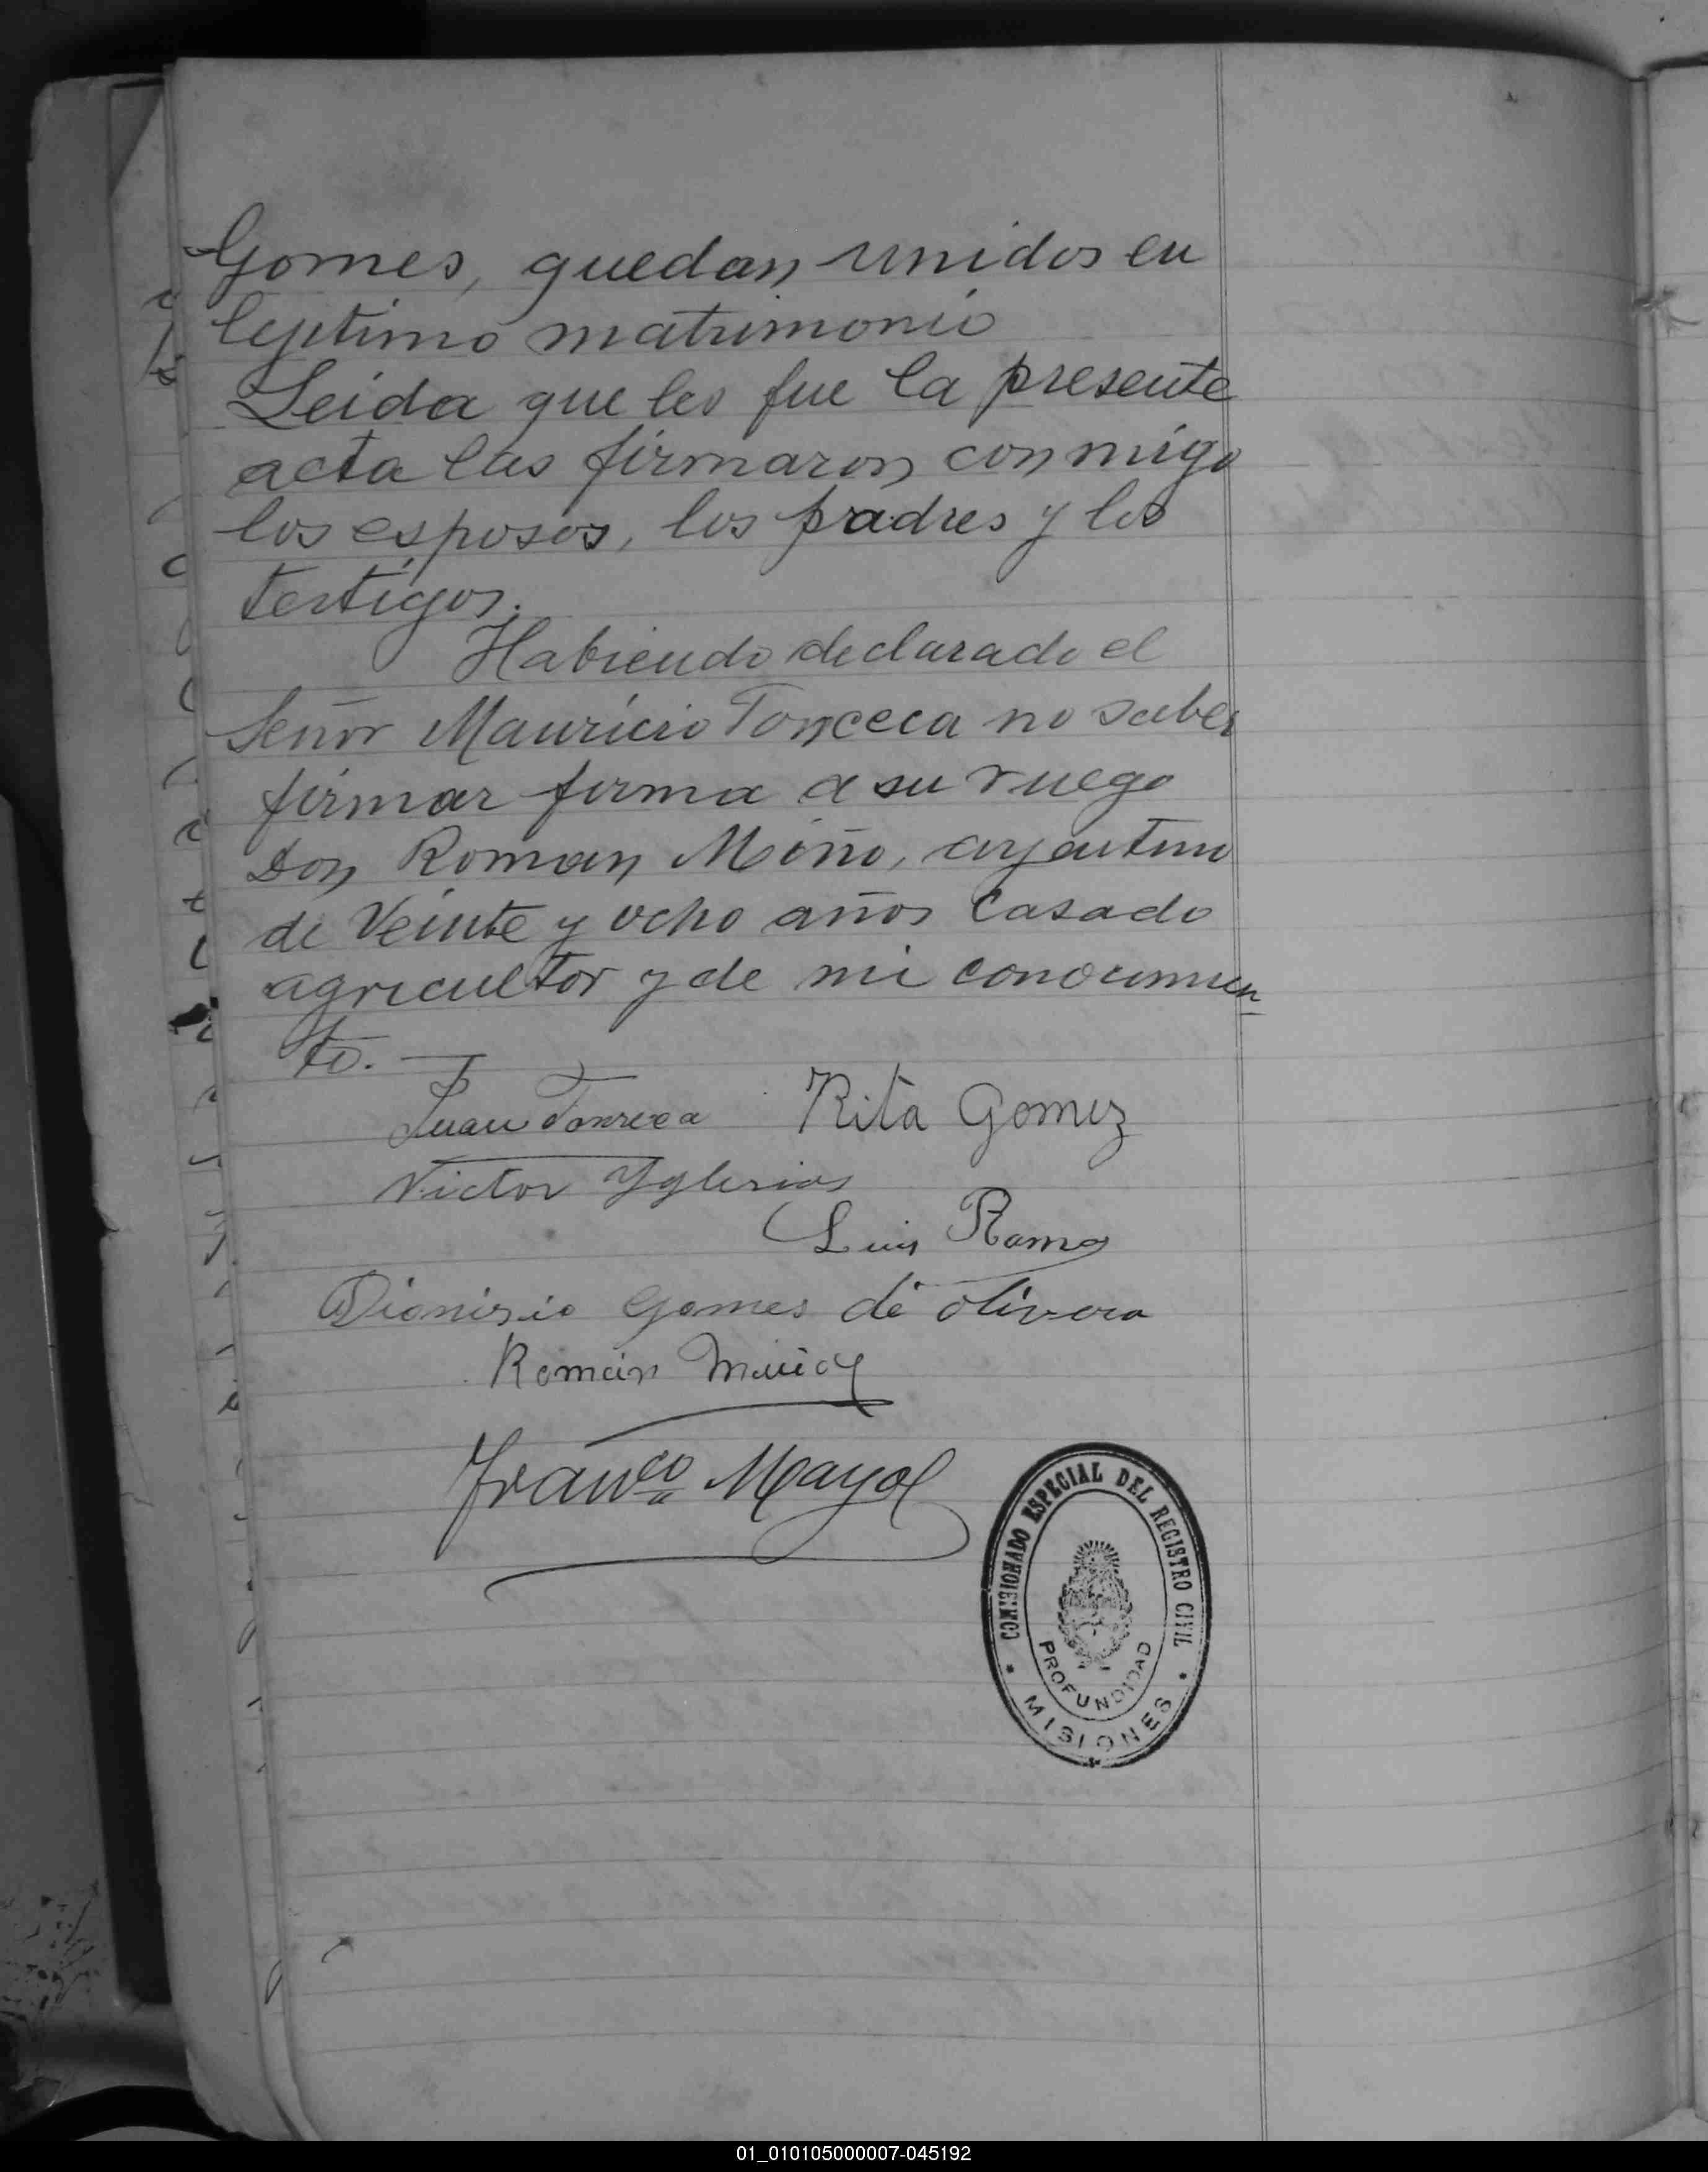 Gomes, quedan unidos en
lejitimo matrimonio
Leida que les fue la presente
acta las firmaron conmigo
los esposos, los padres y los
testigos.
Habiendo declarado el
Señor Mauricio Fonceca no saber
firmar firma a su ruego
Don Roman Miño, arjentino
de Veinte y ocho años Casado
agricultor y de mi conocimien
to.
Juan Fonceca Rita Gomez
Victor Yglesias
Luis Ramos
Dionisio Gomes de olivera
Román
Franco Mayol
COMISIONADO ESPECIAL DEL REGISTRO CIVIL
PROFUNDIDAD
MISIONES
01_010105000007-045192